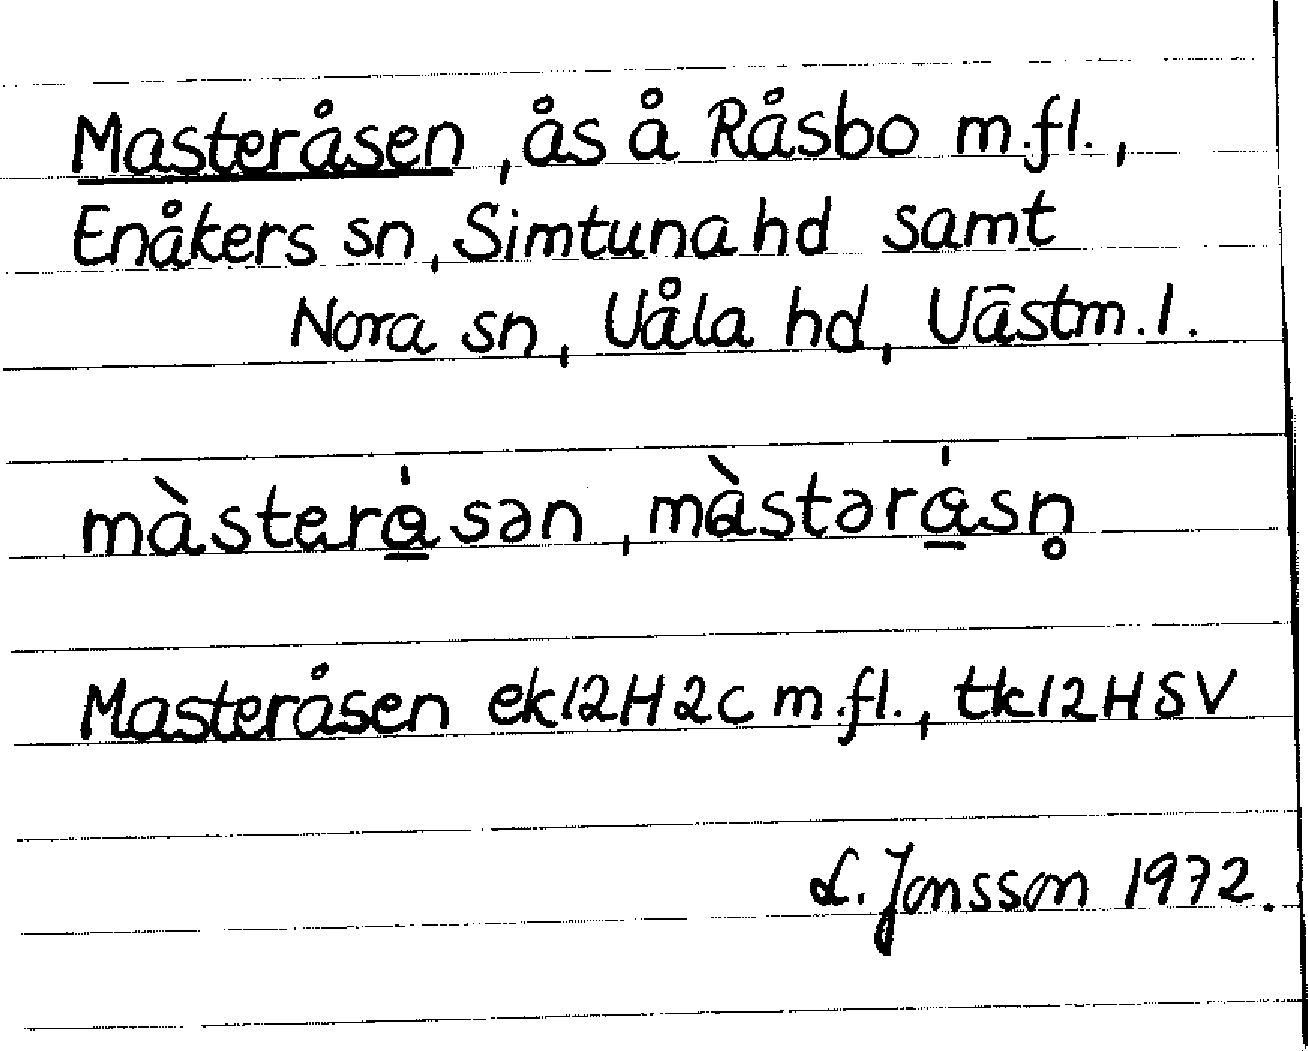 Masteråsen, ås å Råsbo m.fl.,
Enåkers sn, Simtuna hd samt
Nora sn, Våla hd, Västm.l.
màsterά̲sən, mὰstərά̲sn̥
Masteråsen ek12H2c m.fl., tk12HSV
L. Jonsson 1972.